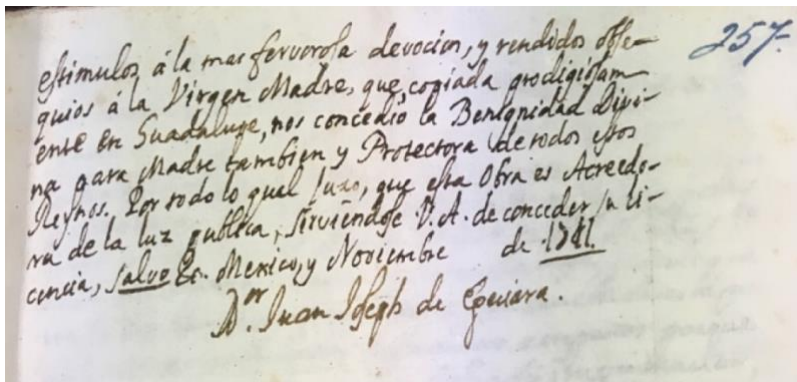 257.
estimulos á la mas fervorosa devocion, y rendidos obse-
quios á la Virgen Madre, que, copiada prodigiosam-
ente en Guadalupe, nos concedió la Benignidad Divi-
na para Madre tambien y Protectora de todos estos
Reynos. Por todo lo qual juzgo, que esta Obra es Acreedo-
ra de la luz publica, sirviendose V.A. de conceder su li-
cencia, salvo &c. Mexico, y Noviembre de 1741.
D.or Juan Joseph de Eguiara.